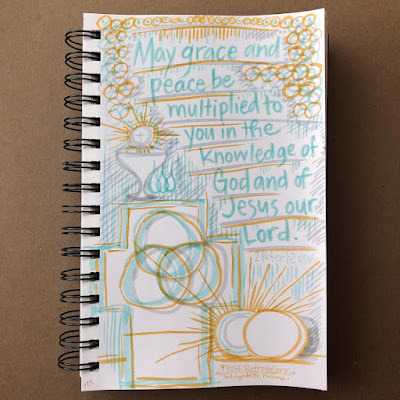 May grace and
peace be
multiplied to
you in the
knowledge of
God and of
Jesus our
Lord.
2 Peter 1:2 ESV